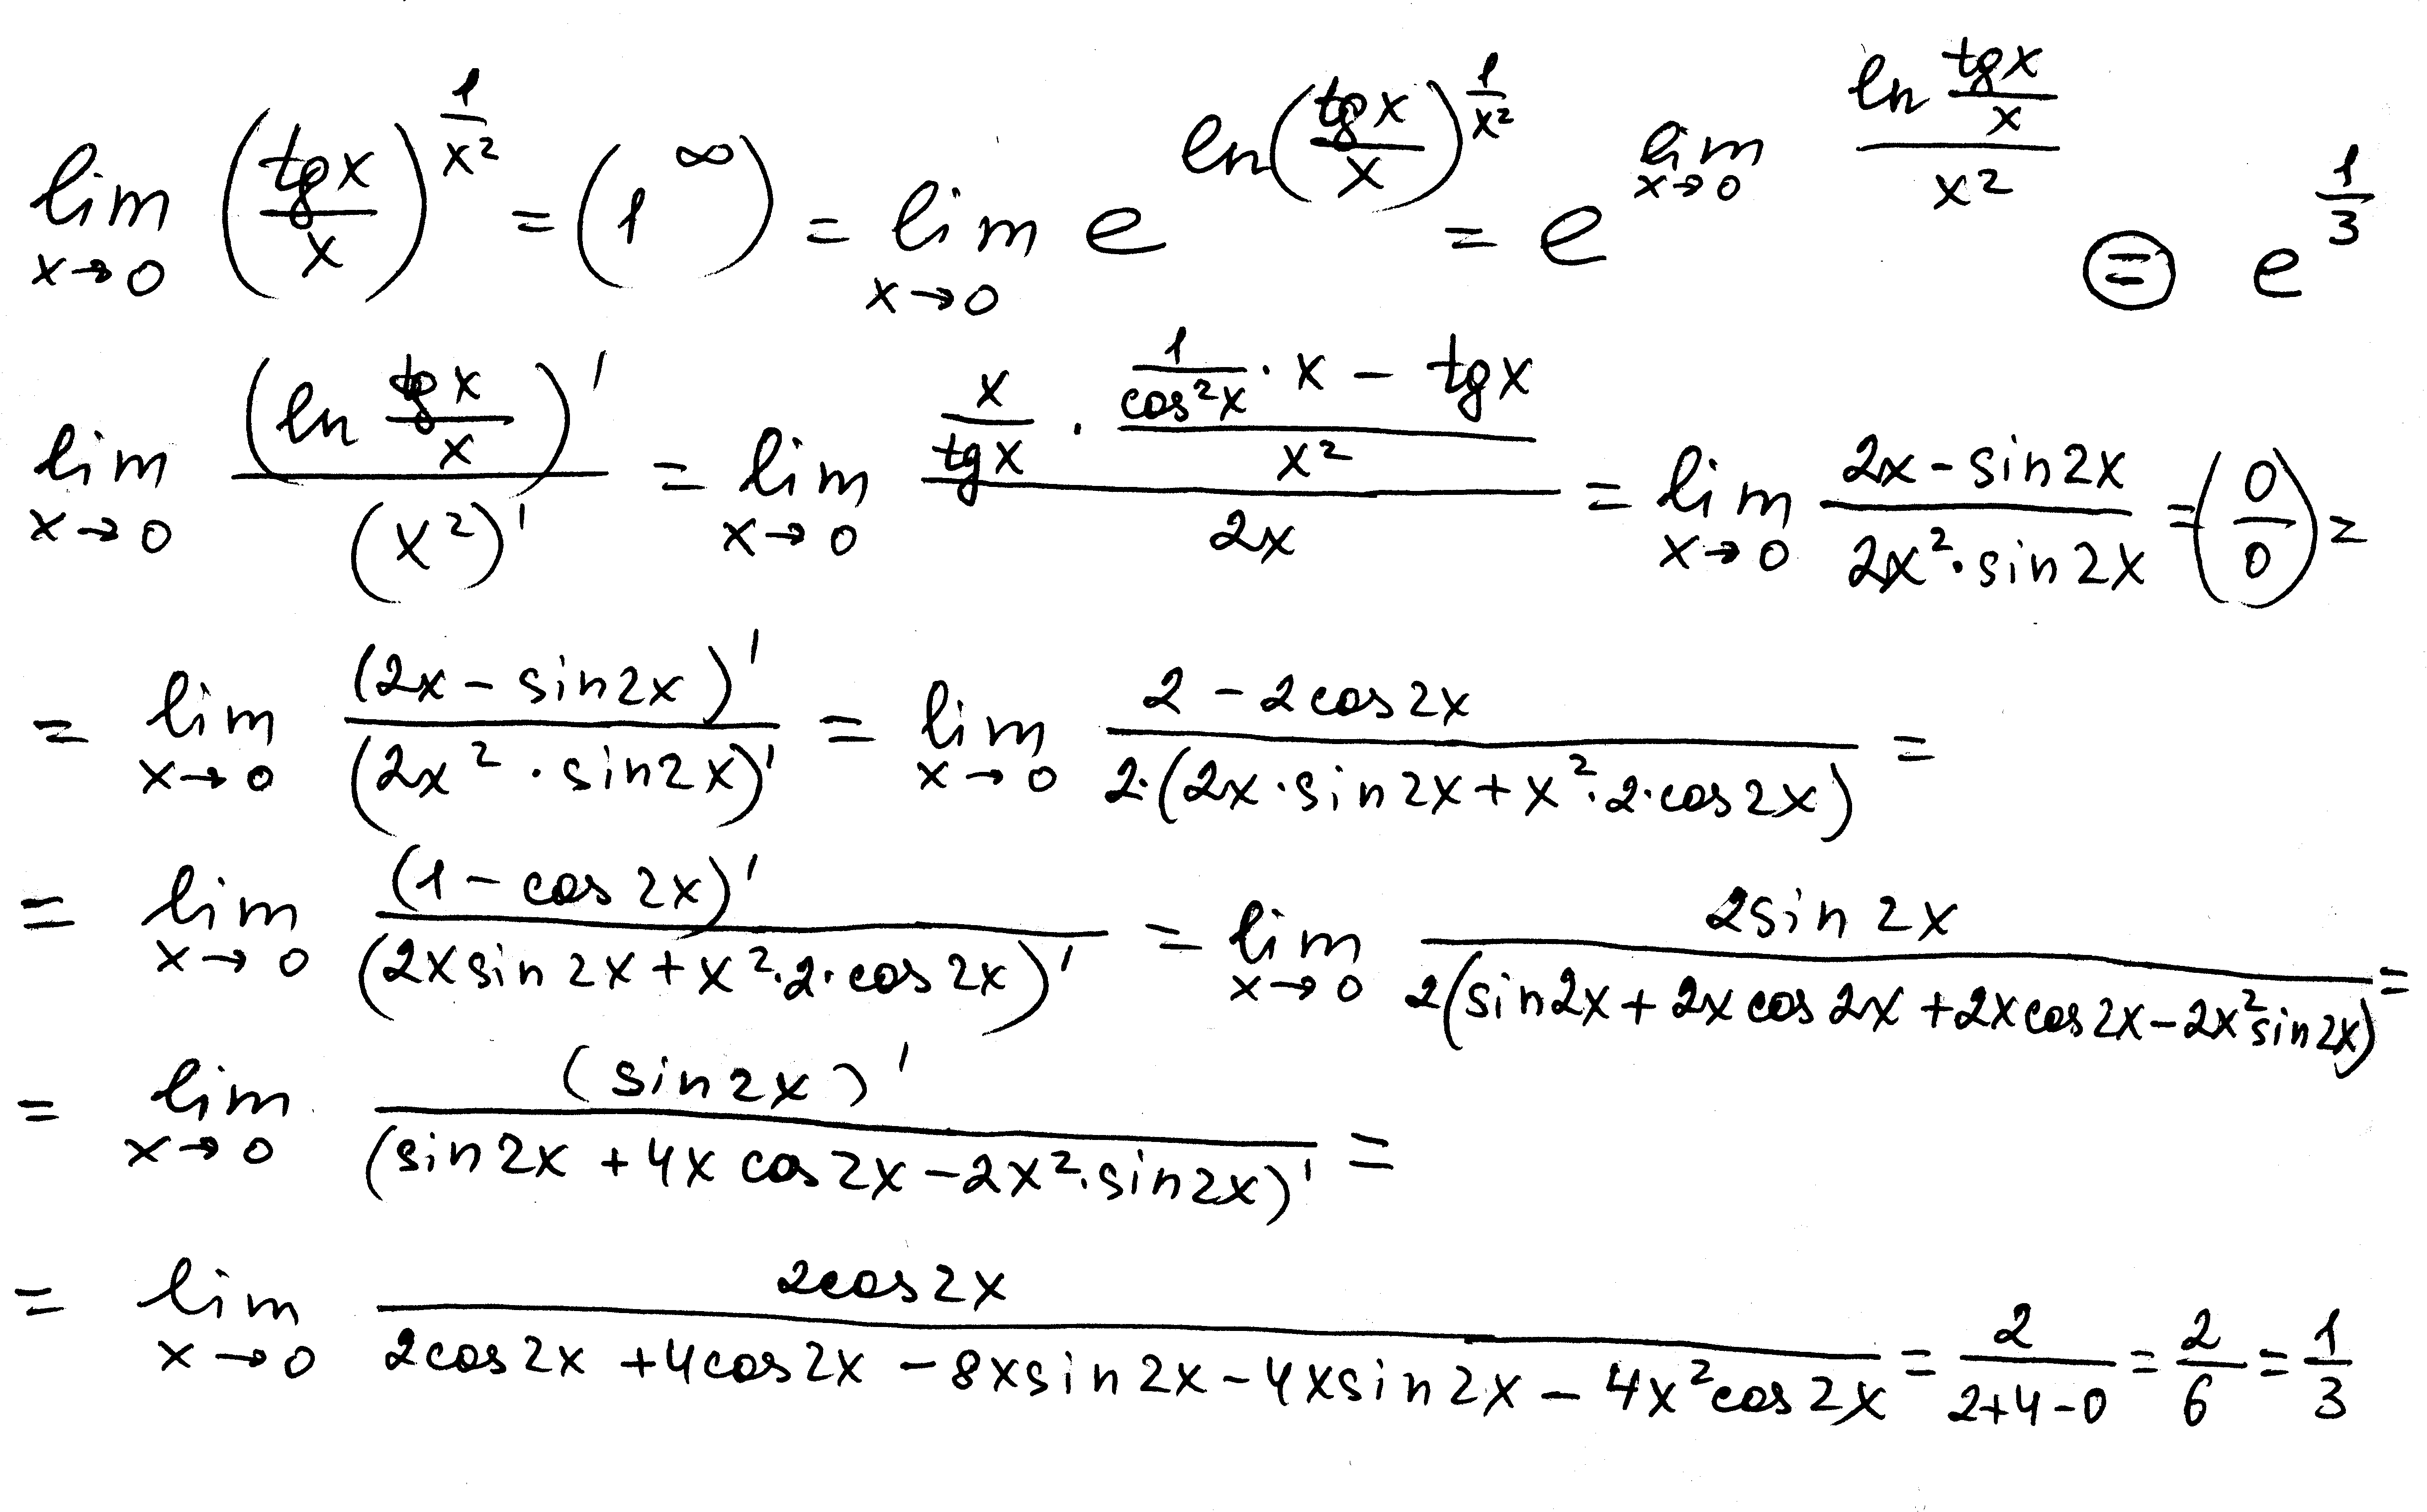 lim x→0 (tg x / x)^(1/x²) = (1^∞) = lim x→0 e^(ln(tg x / x)^(1/x²)) = e^(lim x→0 (ln (tg x / x)) / x²) ⊜ e^(1/3)
lim x→0 (ln (tg x / x))' / (x²)' = lim x→0 (x / tg x · (1/cos²x · x − tg x) / x²) / 2x = lim x→0 (2x − sin 2x) / (2x² · sin 2x) = (0/0) =
= lim x→0 (2x − sin 2x)' / (2x² · sin 2x)' = lim x→0 (2 − 2cos 2x) / (2·(2x · sin 2x + x² · 2 · cos 2x)) =
= lim x→0 (1 − cos 2x)' / (2x sin 2x + x² · 2 · cos 2x)' = lim x→0 2 sin 2x / 2(sin 2x + 2x cos 2x + 2x cos 2x − 2x² sin 2x) =
= lim x→0 (sin 2x)' / (sin 2x + 4x cos 2x − 2x² · sin 2x)' =
= lim x→0 2cos 2x / (2cos 2x + 4cos 2x − 8x sin 2x − 4x sin 2x − 4x² cos 2x) = 2 / (2+4−0) = 2/6 = 1/3